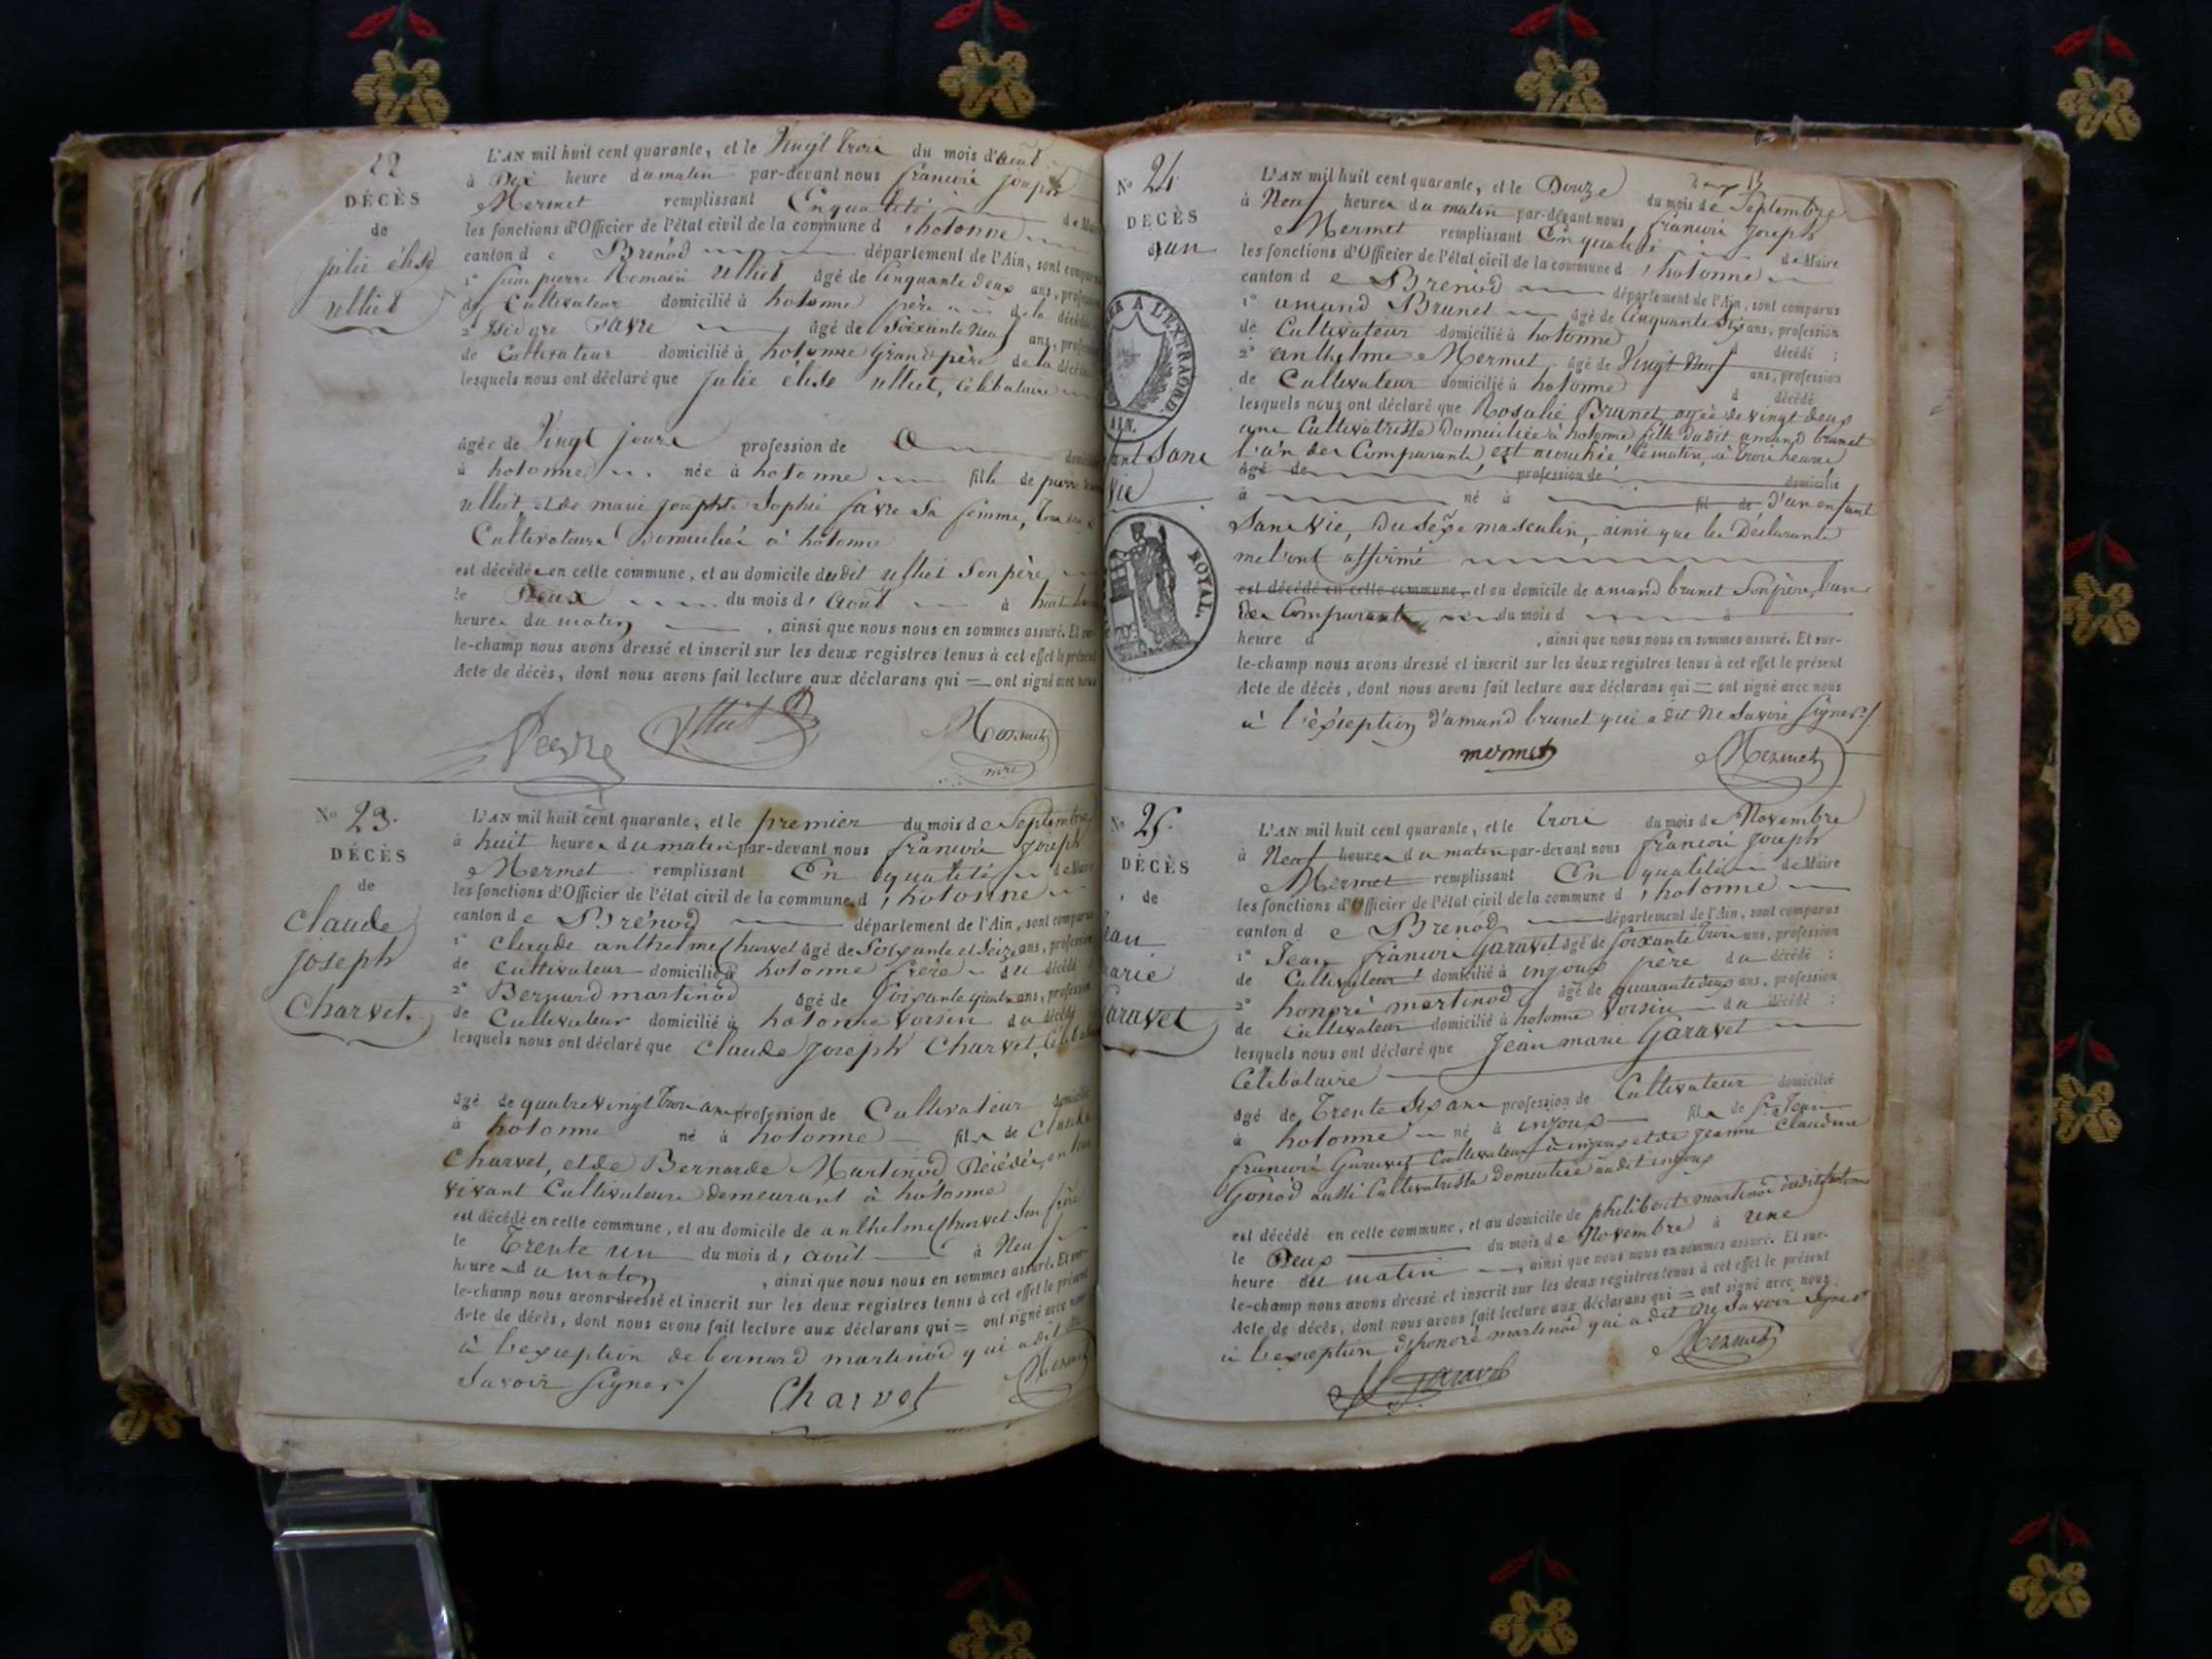 22
DÉCÈS
de
julie élise
ulliet
L'AN mil huit cent quarante, et le Vingt trois du mois d'août
à Dix heure du matin par-devant nous françois joseph
Mermet remplissant En qualité de Maire
les fonctions d'Officier de l'état civil de la commune d'hotonne
canton de Brénod département de l'Ain, sont comparus
1° jean pierre Romain Ulliet âgé de Cinquante Deux ans, profession
de Cultivateur domicilié à hotonne père de la décédée
2° favre âgé de Soixante Neuf ans, profession
de Cultivateur domicilié à hotonne Grand père de la décédée
lesquels nous ont déclaré que Julie élise ulliet, Célibataire
âgée de Vingt jours profession de
à hotonne née à hotonne fille de pierre
ulliet, et de marie josephte Sophie favre Sa femme,
Cultivateurs Domiciliés à hotonne
est décédée en cette commune, et au domicile dudit ulliet Son père,
le Deux du mois d'août à huit
heures du matin, ainsi que nous nous en sommes assuré. Et sur-
le-champ nous avons dressé et inscrit sur les deux registres tenus à cet effet le présent
Acte de décès, dont nous avons fait lecture aux déclarans qui = ont signé avec nous
favre Ulliet Mermet
mre
No 23.
DÉCÈS
de
claude
joseph
Charvet.
L'AN mil huit cent quarante, et le premier du mois de Septembre
à huit heures du matin par-devant nous françois joseph
Mermet remplissant En qualité de Maire
les fonctions d'Officier de l'état civil de la commune d'hotonne
canton de Brénod département de l'Ain, sont comparus
1° claude anthelme Charvet âgé de Soixante et Seize ans, profession
de cultivateur domicilié à hotonne frère du décédé
2° Bernard martinod âgé de ans, profession
de Cultivateur domicilié à hotonne Voisin du décédé
lesquels nous ont déclaré que claude joseph Charvet, Célibataire
âgé de quatre vingt trois ans profession de Cultivateur domicilié
à hotonne né à hotonne fils de Claude
Charvet, et de Bernarde Martinod Décédés, en leur
vivant Cultivateurs demeurant à hotonne
est décédé en cette commune, et au domicile de anthelme Charvet Son frère
le Trente un du mois d'août à Neuf
heures du matin, ainsi que nous nous en sommes assuré. Et sur-
le-champ nous avons dressé et inscrit sur les deux registres tenus à cet effet le présent
Acte de décès, dont nous avons fait lecture aux déclarans qui = ont signé avec nous
à l'exception de bernard martinod qui a dit ne
Savoir Signer
Charvet Mermet
No 24.
DÉCÈS
d'un
enfant Sans
Vie
A L'EXTRAORD.
AIN.
ROYAL.
L'AN mil huit cent quarante, et le Douze du mois de Septembre
à Neuf heures du matin par-devant nous françois joseph
Mermet remplissant En qualité de Maire
les fonctions d'Officier de l'état civil de la commune d'hotonne
canton de Brénod département de l'Ain, sont comparus
1° amand Brunet âgé de Cinquante Six ans, profession
de Cultivateur domicilié à hotonne d décédé :
2° anthelme Mermet âgé de Vingt Neuf ans, profession
de Cultivateur domicilié à hotonne d décédé
lesquels nous ont déclaré que Rosalie Brunet, agée de vingt deux
ans Cultivatrisse Domiciliée à hotonne fille dudit amand brunet
l'un des Comparants, est acouchée ce matin, à trois heures
âgé de profession de domicilié
à né à fil de D'un enfant
Sans Vie, Du Sexe masculin, ainsi que les Déclarants
me l'ont affirmé
est décédé en cette commune, et au domicile de amand brunet Son père, l'un
des Comparants du mois d à
heure d , ainsi que nous nous en sommes assuré. Et sur-
le-champ nous avons dressé et inscrit sur les deux registres tenus à cet effet le présent
Acte de décès, dont nous avons fait lecture aux déclarans qui = ont signé avec nous
à l'exception d'amand brunet qui a dit ne Savoir Signer
mermet Mermet
No 25.
DÉCÈS
de
Jean
marie
Garavet
L'AN mil huit cent quarante, et le trois du mois de Novembre
à Neuf heures du matin par-devant nous françois joseph
Mermet remplissant En qualité de Maire
les fonctions d'Officier de l'état civil de la commune d'hotonne
canton de Brénod département de l'Ain, sont comparus
1° Jean françois Garavet âgé de Soixante trois ans, profession
de Cultivateur domicilié à injoux père du décédé :
2° honoré martinod âgé de quarante deux ans, profession
de Cultivateur domicilié à hotonne Voisin du décédé :
lesquels nous ont déclaré que Jean marie Garavet
Célibataire
âgé de Trente Six ans profession de Cultivateur domicilié
à hotonne né à injoux fils de Jean
françois Garavet Cultivateur à injoux et de jeanne Claudine
Gonod aussi Cultivatrisse Domiciliée audit injoux
est décédé en cette commune, et au domicile de philibert martinod audit hotonne
le Deux du mois de Novembre à une
heure du matin, ainsi que nous nous en sommes assuré. Et sur-
le-champ nous avons dressé et inscrit sur les deux registres tenus à cet effet le présent
Acte de décès, dont nous avons fait lecture aux déclarans qui = ont signé avec nous
à l'exception d'honoré martinod qui a dit ne Savoir Signer
Garavet Mermet